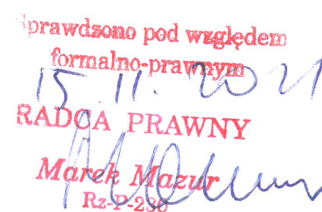 Sprawdzono pod względem
formalno-prawnym
15.11.2021
RADCA PRAWNY
Marek Mazur
Rz-P-230